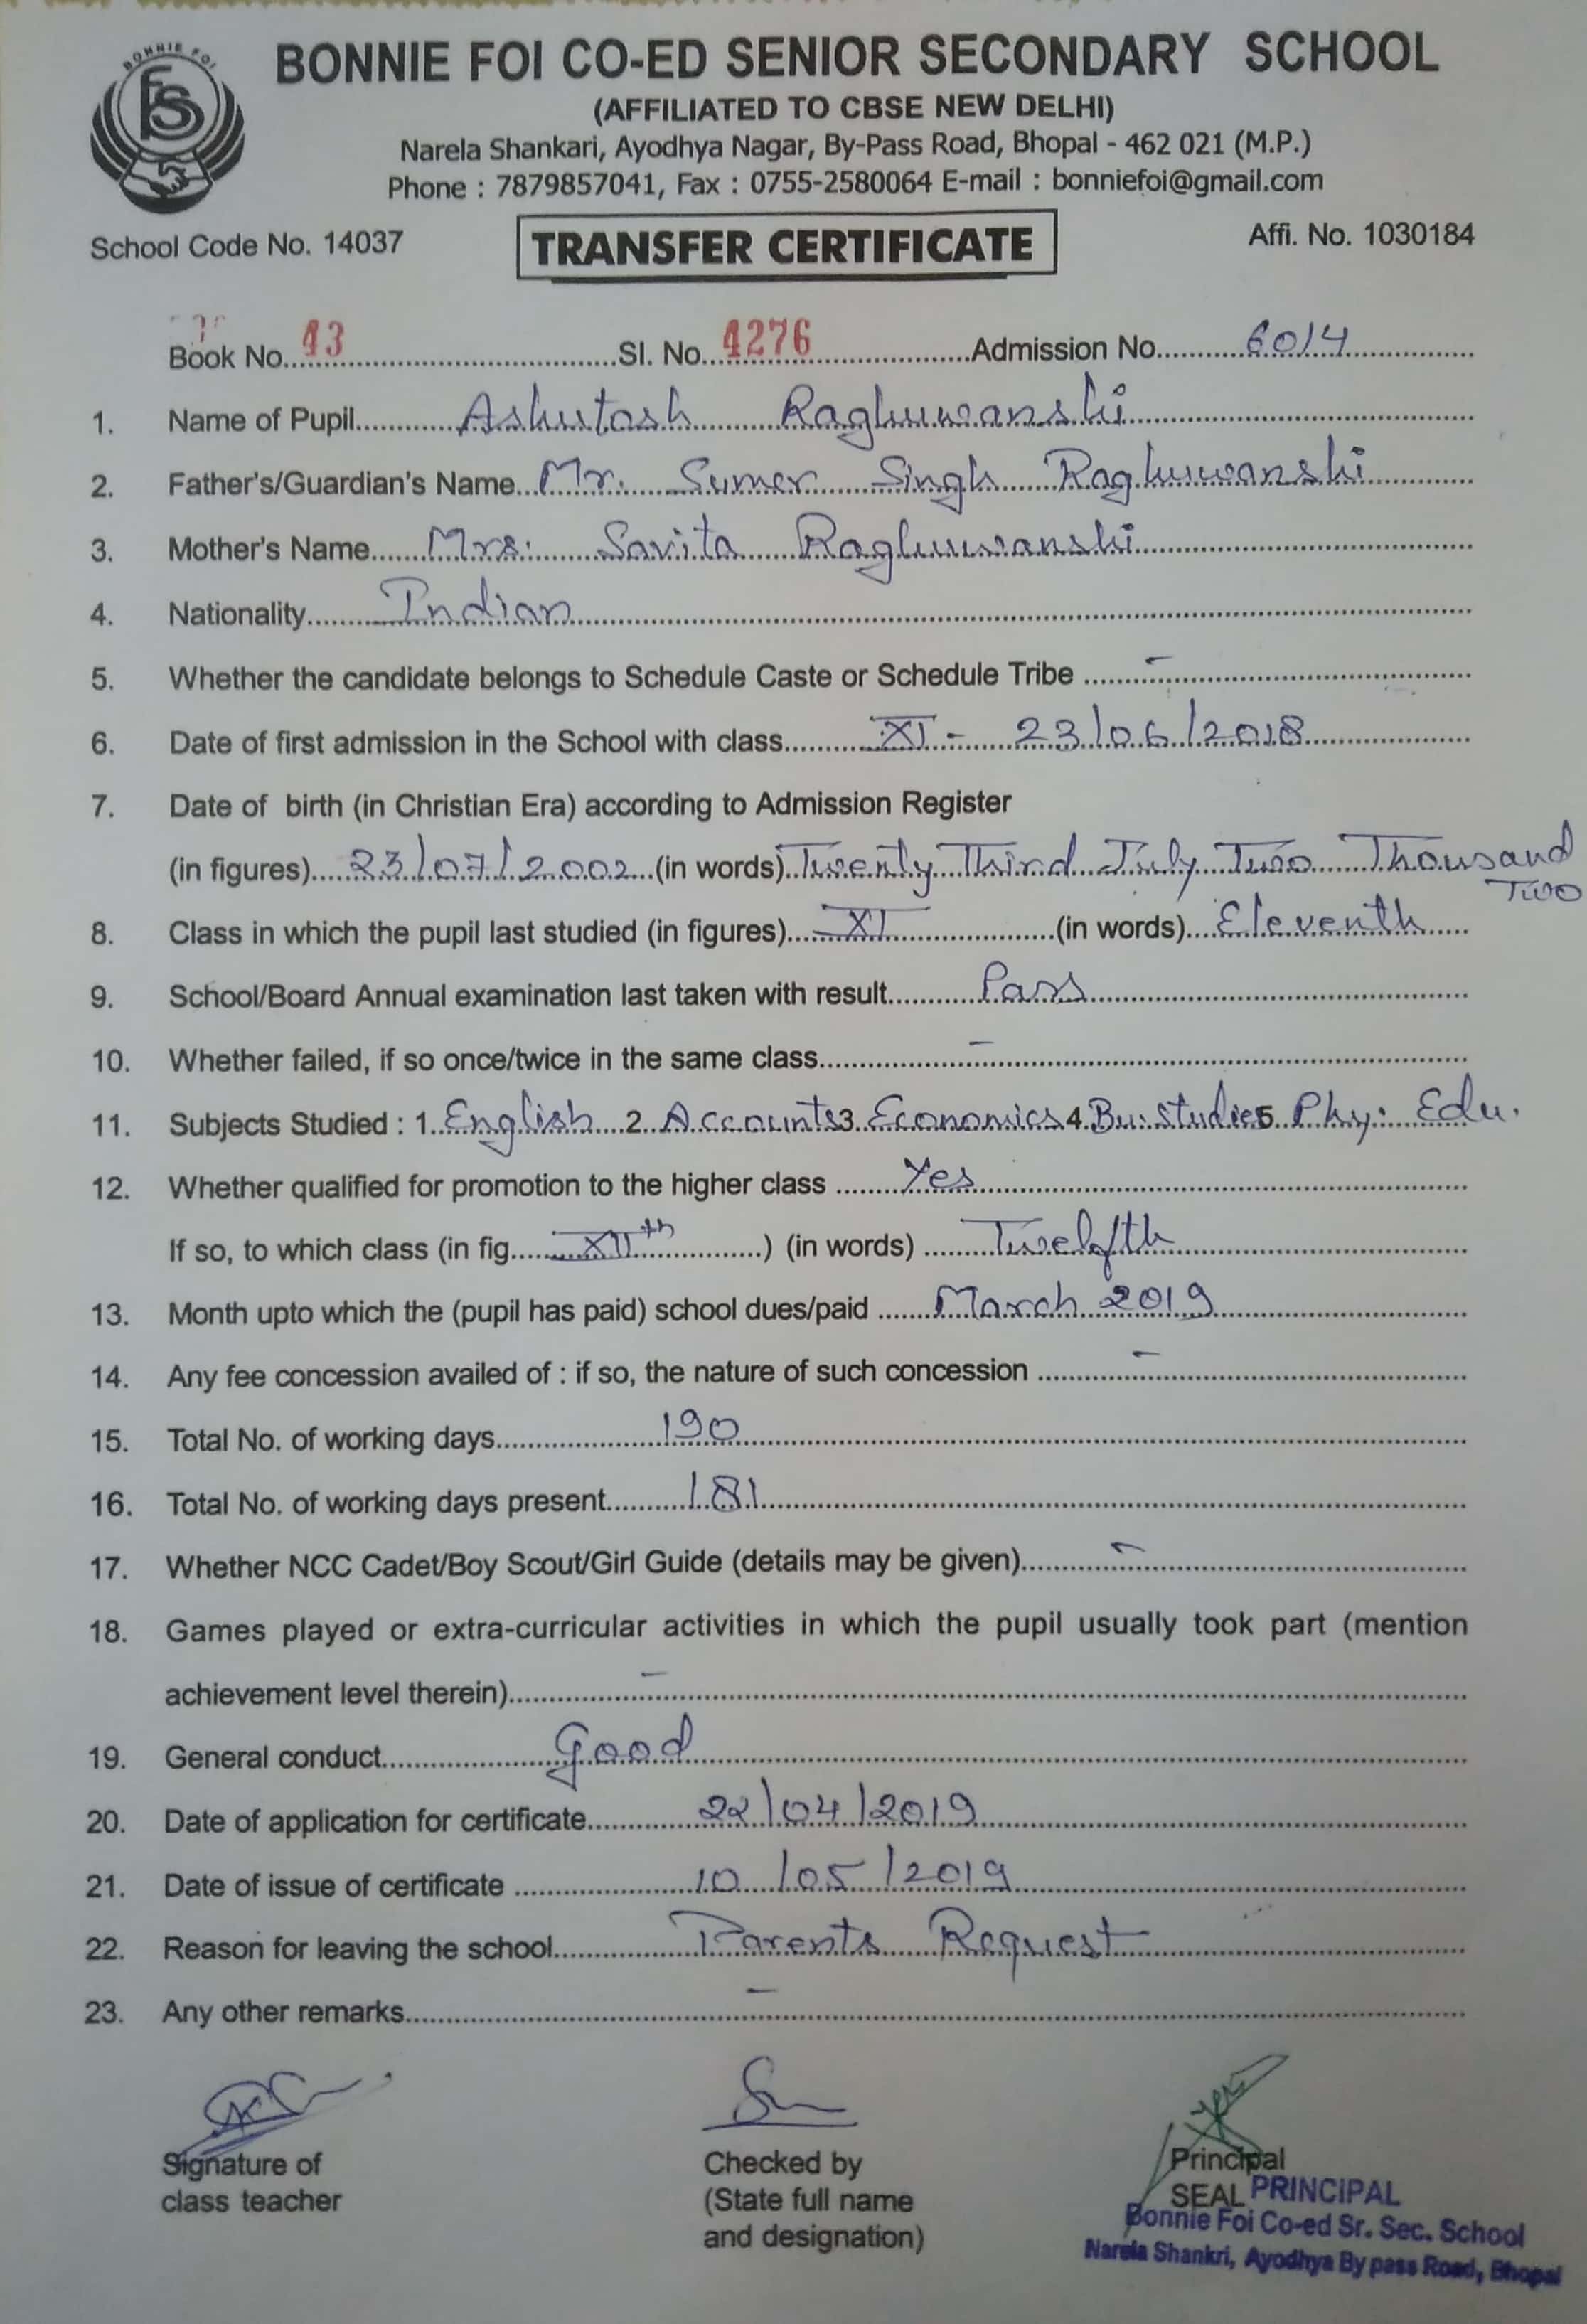 BONNIE FOI
FSS
BONNIE FOI CO-ED SENIOR SECONDARY SCHOOL
(AFFILIATED TO CBSE NEW DELHI)
Narela Shankari, Ayodhya Nagar, By-Pass Road, Bhopal - 462 021 (M.P.)
Phone : 7879857041, Fax : 0755-2580064 E-mail : bonniefoi@gmail.com
School Code No. 14037 TRANSFER CERTIFICATE Affi. No. 1030184
Book No. 43 Sl. No. 4276 Admission No. 6014
1. Name of Pupil Ashutosh Raghuwanshi
2. Father's/Guardian's Name Mr. Sumer Singh Raghuwanshi
3. Mother's Name Mrs. Savita Raghuwanshi
4. Nationality Indian
5. Whether the candidate belongs to Schedule Caste or Schedule Tribe -
6. Date of first admission in the School with class XI - 23/06/2018
7. Date of birth (in Christian Era) according to Admission Register
(in figures) 23/07/2002 (in words) Twenty Third July Two Thousand
Two
8. Class in which the pupil last studied (in figures) XI (in words) Eleventh
9. School/Board Annual examination last taken with result Pass
10. Whether failed, if so once/twice in the same class -
11. Subjects Studied : 1. English 2. Accounts 3. Economics 4. Bu. Studies 5. Phy. Edu.
12. Whether qualified for promotion to the higher class Yes
If so, to which class (in fig. XIIth ) (in words) Twelfth
13. Month upto which the (pupil has paid) school dues/paid March 2019
14. Any fee concession availed of : if so, the nature of such concession -
15. Total No. of working days 190
16. Total No. of working days present 181
17. Whether NCC Cadet/Boy Scout/Girl Guide (details may be given) -
18. Games played or extra-curricular activities in which the pupil usually took part (mention
achievement level therein) -
19. General conduct Good
20. Date of application for certificate 22/04/2019
21. Date of issue of certificate 10/05/2019
22. Reason for leaving the school Parents Request
23. Any other remarks -
Signature of Checked by Principal
class teacher (State full name SEAL PRINCIPAL
and designation) Bonnie Foi Co-ed Sr. Sec. School
Narela Shankri, Ayodhya By pass Road, Bhopal